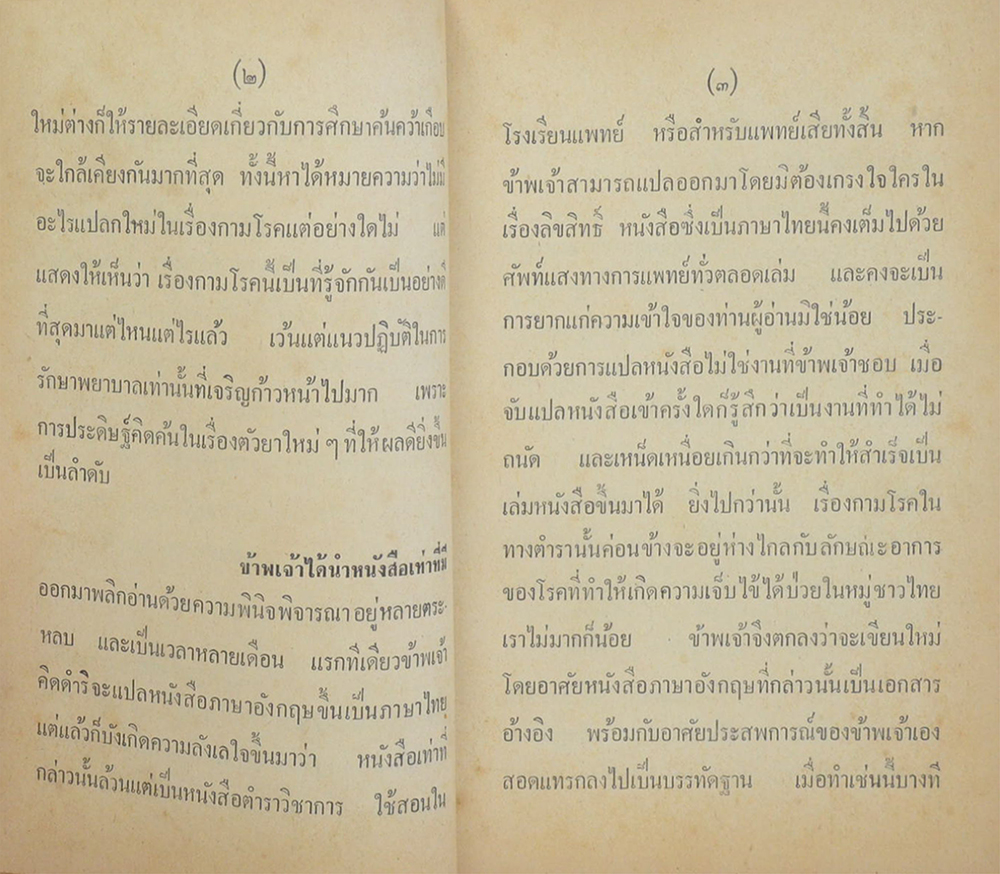 (๒)
ใหม่ต่างก็ให้รายละเอียดเกี่ยวกับการศึกษาค้นคว้าเกือบ
จะใกล้เคียงกันมากที่สุด ทั้งนี้หาได้หมายความว่าไม่มี
อะไรแปลกใหม่ในเรื่องกามโรคแต่อย่างใดไม่ แต่
แสดงให้เห็นว่า เรื่องกามโรคนี้เป็นที่รู้จักกันเป็นอย่างดี
ที่สุดมาแต่ไหนแต่ไรแล้ว เว้นแต่แนวปฏิบัติในการ
รักษาพยาบาลเท่านั้นที่เจริญก้าวหน้าไปมาก เพราะ
การประดิษฐ์คิดค้นในเรื่องตัวยาใหม่ ๆ ที่ให้ผลดียิ่งขึ้น
เป็นลำดับ
ข้าพเจ้าได้นำหนังสือเท่าที่มี
ออกมาพลิกอ่านด้วยความพินิจพิจารณาอยู่หลายตระ-
หลบ และเป็นเวลาหลายเดือน แรกทีเดียวข้าพเจ้า
คิดดำริจะแปลหนังสือภาษาอังกฤษขึ้นเป็นภาษาไทย
แต่แล้วก็บังเกิดความลังเลใจขึ้นมาว่า หนังสือเท่าที่
กล่าวนั้นล้วนแต่เป็นหนังสือตำราวิชาการ ใช้สอนใน
(๓)
โรงเรียนแพทย์ หรือสำหรับแพทย์เสียทั้งสิ้น หาก
ข้าพเจ้าสามารถแปลออกมาโดยมิต้องเกรงใจใครใน
เรื่องลิขสิทธิ์ หนังสือซึ่งเป็นภาษาไทยนี้คงเต็มไปด้วย
ศัพท์แสงทางการแพทย์ทั่วตลอดเล่ม และคงจะเป็น
การยากแก่ความเข้าใจของท่านผู้อ่านมิใช่น้อย ประ-
กอบด้วยการแปลหนังสือไม่ใช่งานที่ข้าพเจ้าชอบ เมื่อ
จับแปลหนังสือเข้าครั้งใดก็รู้สึกว่าเป็นงานที่ทำได้ไม่
ถนัด และเหน็ดเหนื่อยเกินกว่าที่จะทำให้สำเร็จเป็น
เล่มหนังสือขึ้นมาได้ ยิ่งไปกว่านั้น เรื่องกามโรคใน
ทางตำรานั้นค่อนข้างจะอยู่ห่างไกลกับลักษณะอาการ
ของโรคที่ทำให้เกิดความเจ็บไข้ได้ป่วยในหมู่ชาวไทย
เราไม่มากก็น้อย ข้าพเจ้าจึงตกลงว่าจะเขียนใหม่
โดยอาศัยหนังสือภาษาอังกฤษที่กล่าวนั้นเป็นเอกสาร
อ้างอิง พร้อมกับอาศัยประสพการณ์ของข้าพเจ้าเอง
สอดแทรกลงไปเป็นบรรทัดฐาน เมื่อทำเช่นนี้บางที